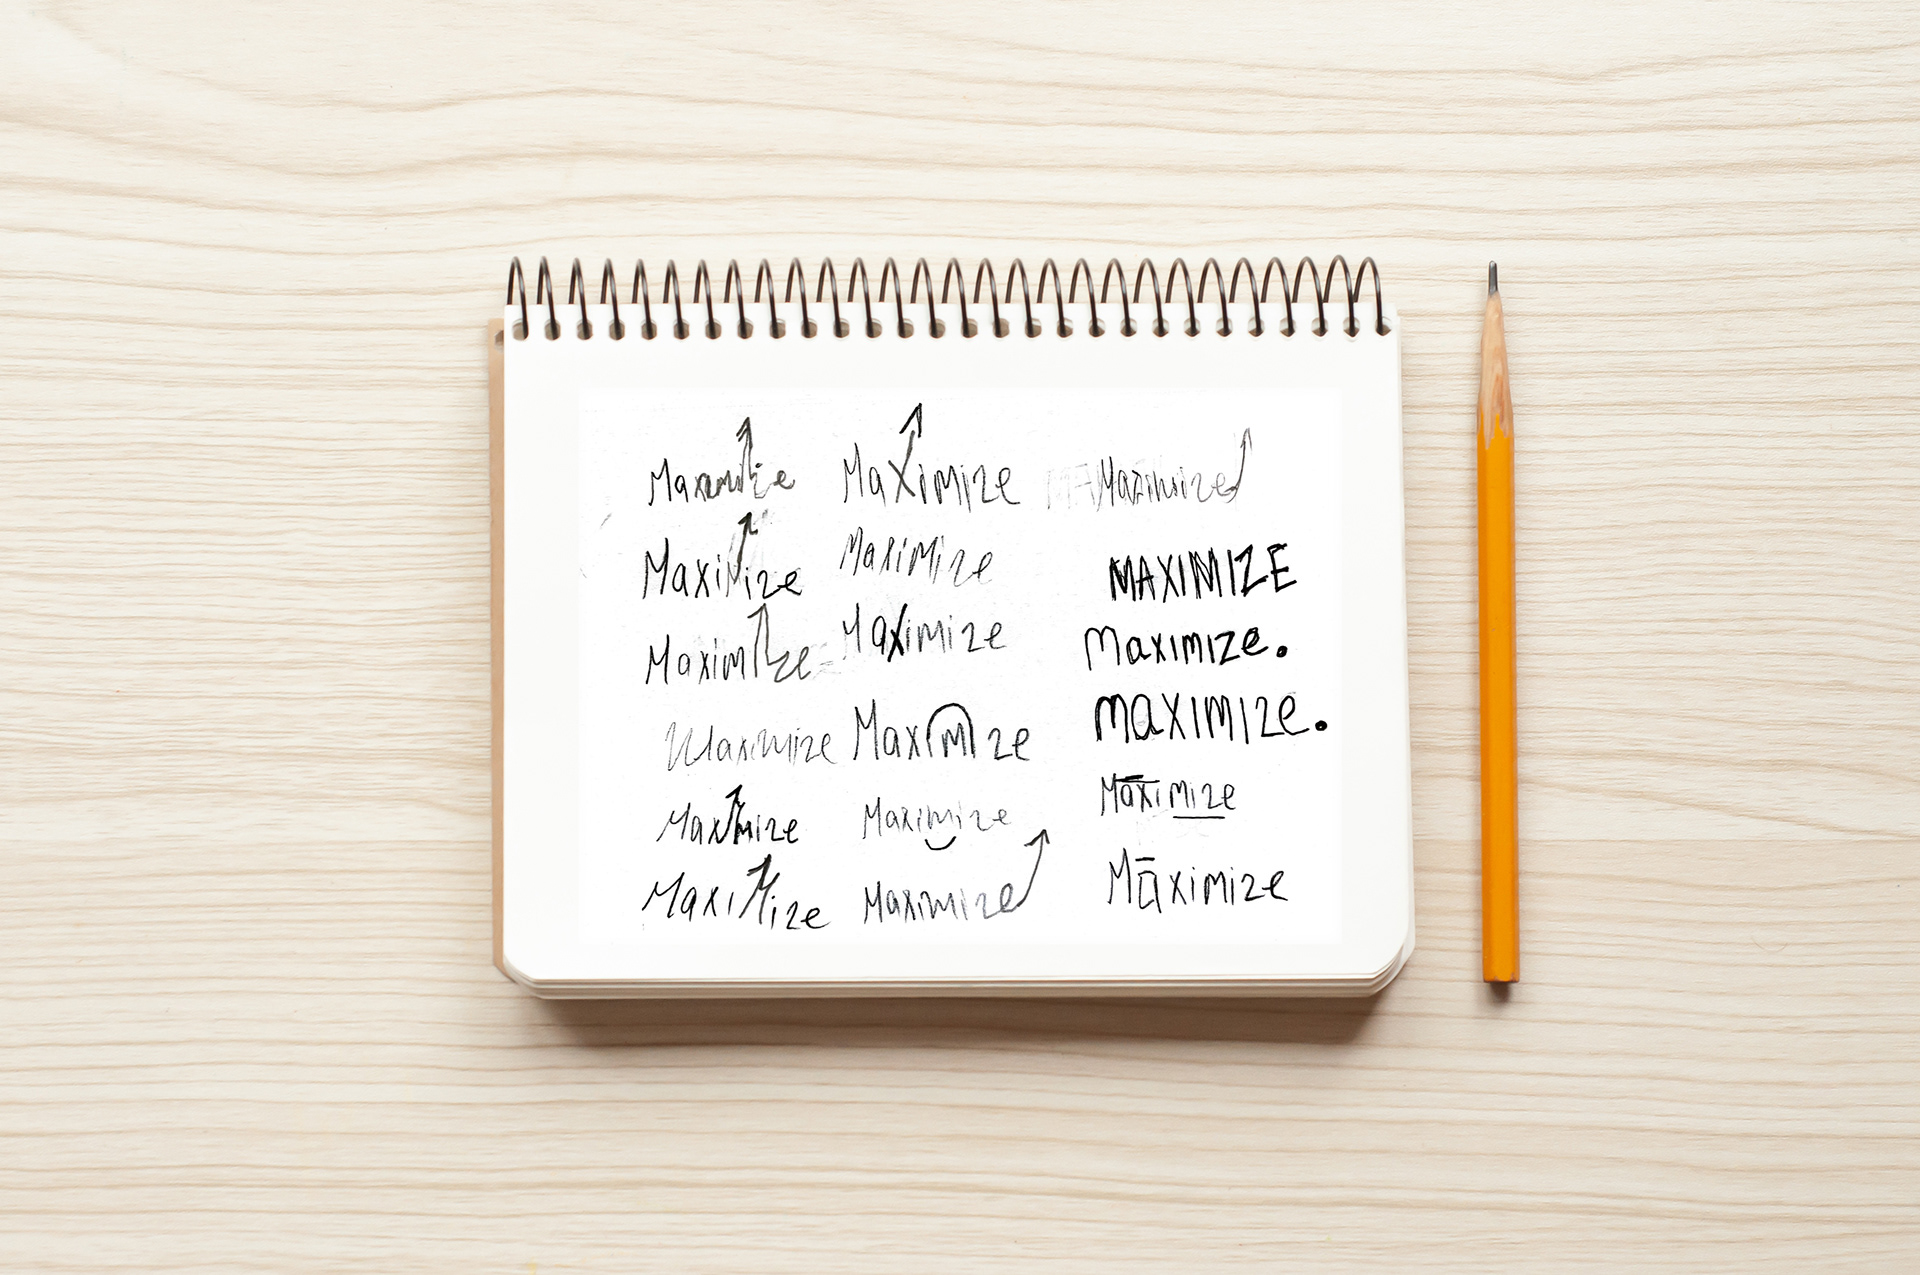 Maximize
Maximize
Maximize
Maximize
Maximize
Maximize
Maximize
Maximize
Maximize
Maximize
Maximize
Maximize
Maximize
MAXIMIZE
Maximize.
maximize.
Māximize
Māximize